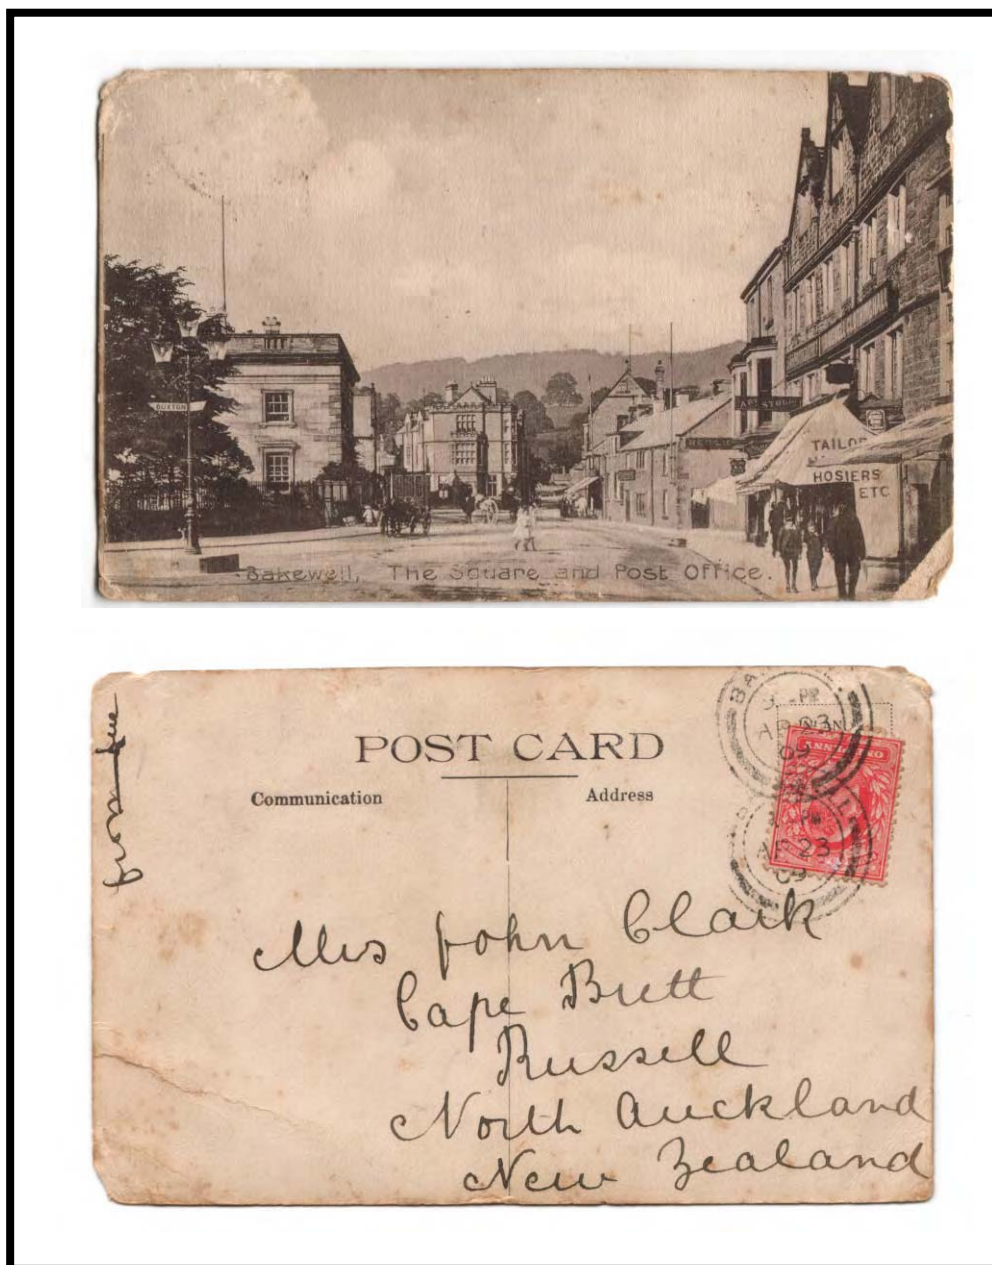 BUXTON
TAILOR
HOSIERS
ETC
Bakewell, The Square and Post Office.
POST CARD
Communication
Address
AP 23
09
PM
AP 23
09
Mrs John Clark
Cape Brett
Russell
North Auckland
New Zealand
from